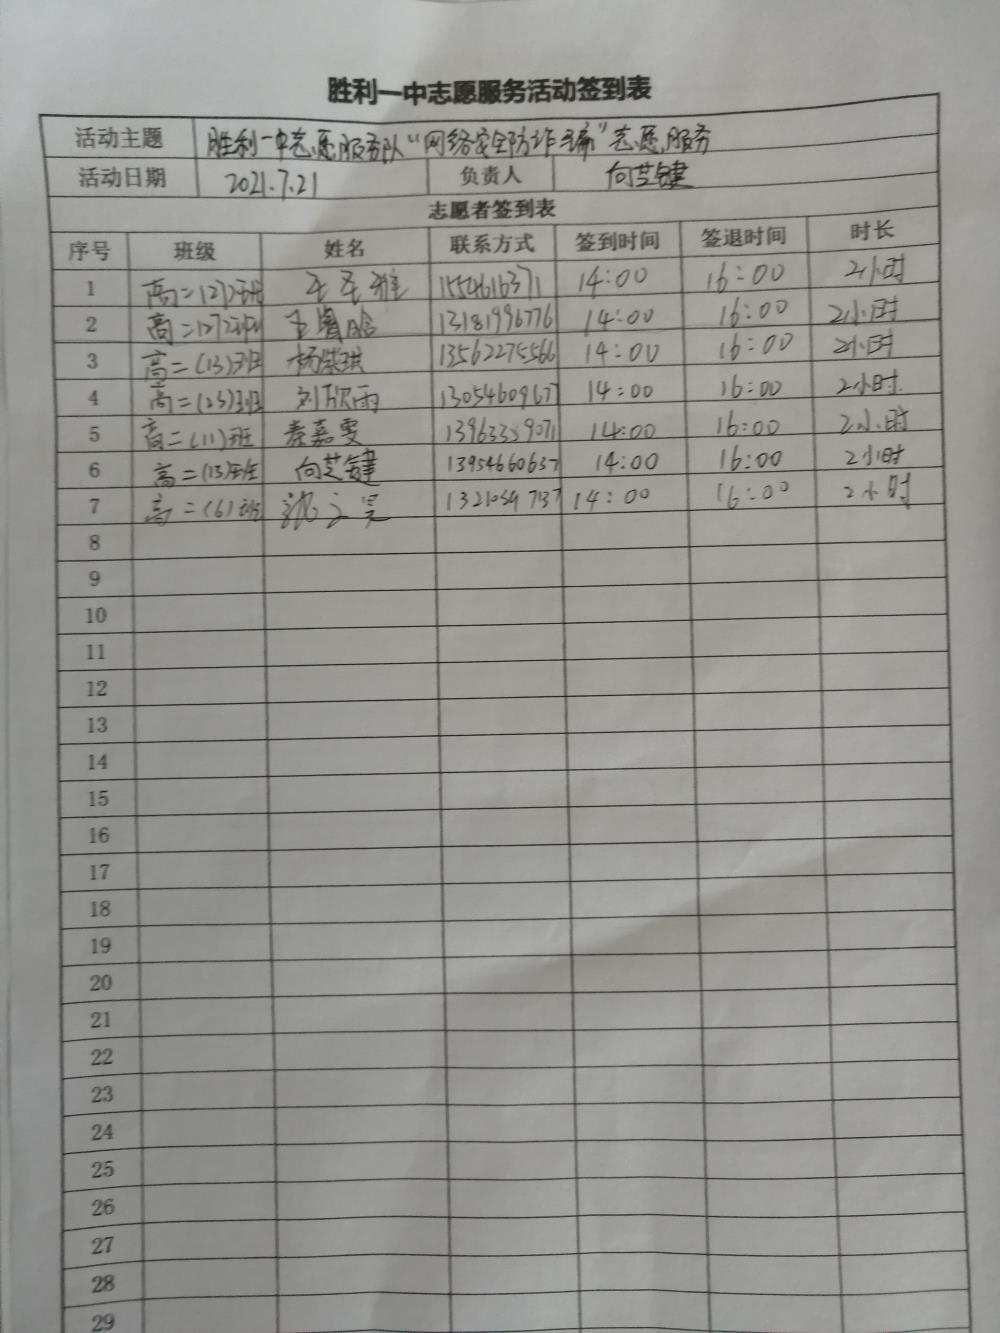 胜利一中志愿服务活动签到表
活动主题 胜利一中志愿服务队“网络安全防诈骗”志愿服务
活动日期 2021.7.21 负责人 向芝键
志愿者签到表
序号 班级 姓名 联系方式 签到时间 签退时间 时长
1 高二(2)班 1554616371 14:00 16:00 2小时
2 高二(27)班 13181996776 14:00 16:00 2小时
3 高二(13)班 13562275566 14:00 16:00 2小时
4 高二(23)班 刘欣雨 13054609677 14:00 16:00 2小时
5 高二(11)班 秦嘉雯 13963359071 14:00 16:00 2小时
6 高二(13)班 向芝键 13954660637 14:00 16:00 2小时
7 高二(6)班 14:00 16:00 2小时
8
9
10
11
12
13
14
15
16
17
18
19
20
21
22
23
24
25
26
27
28
29